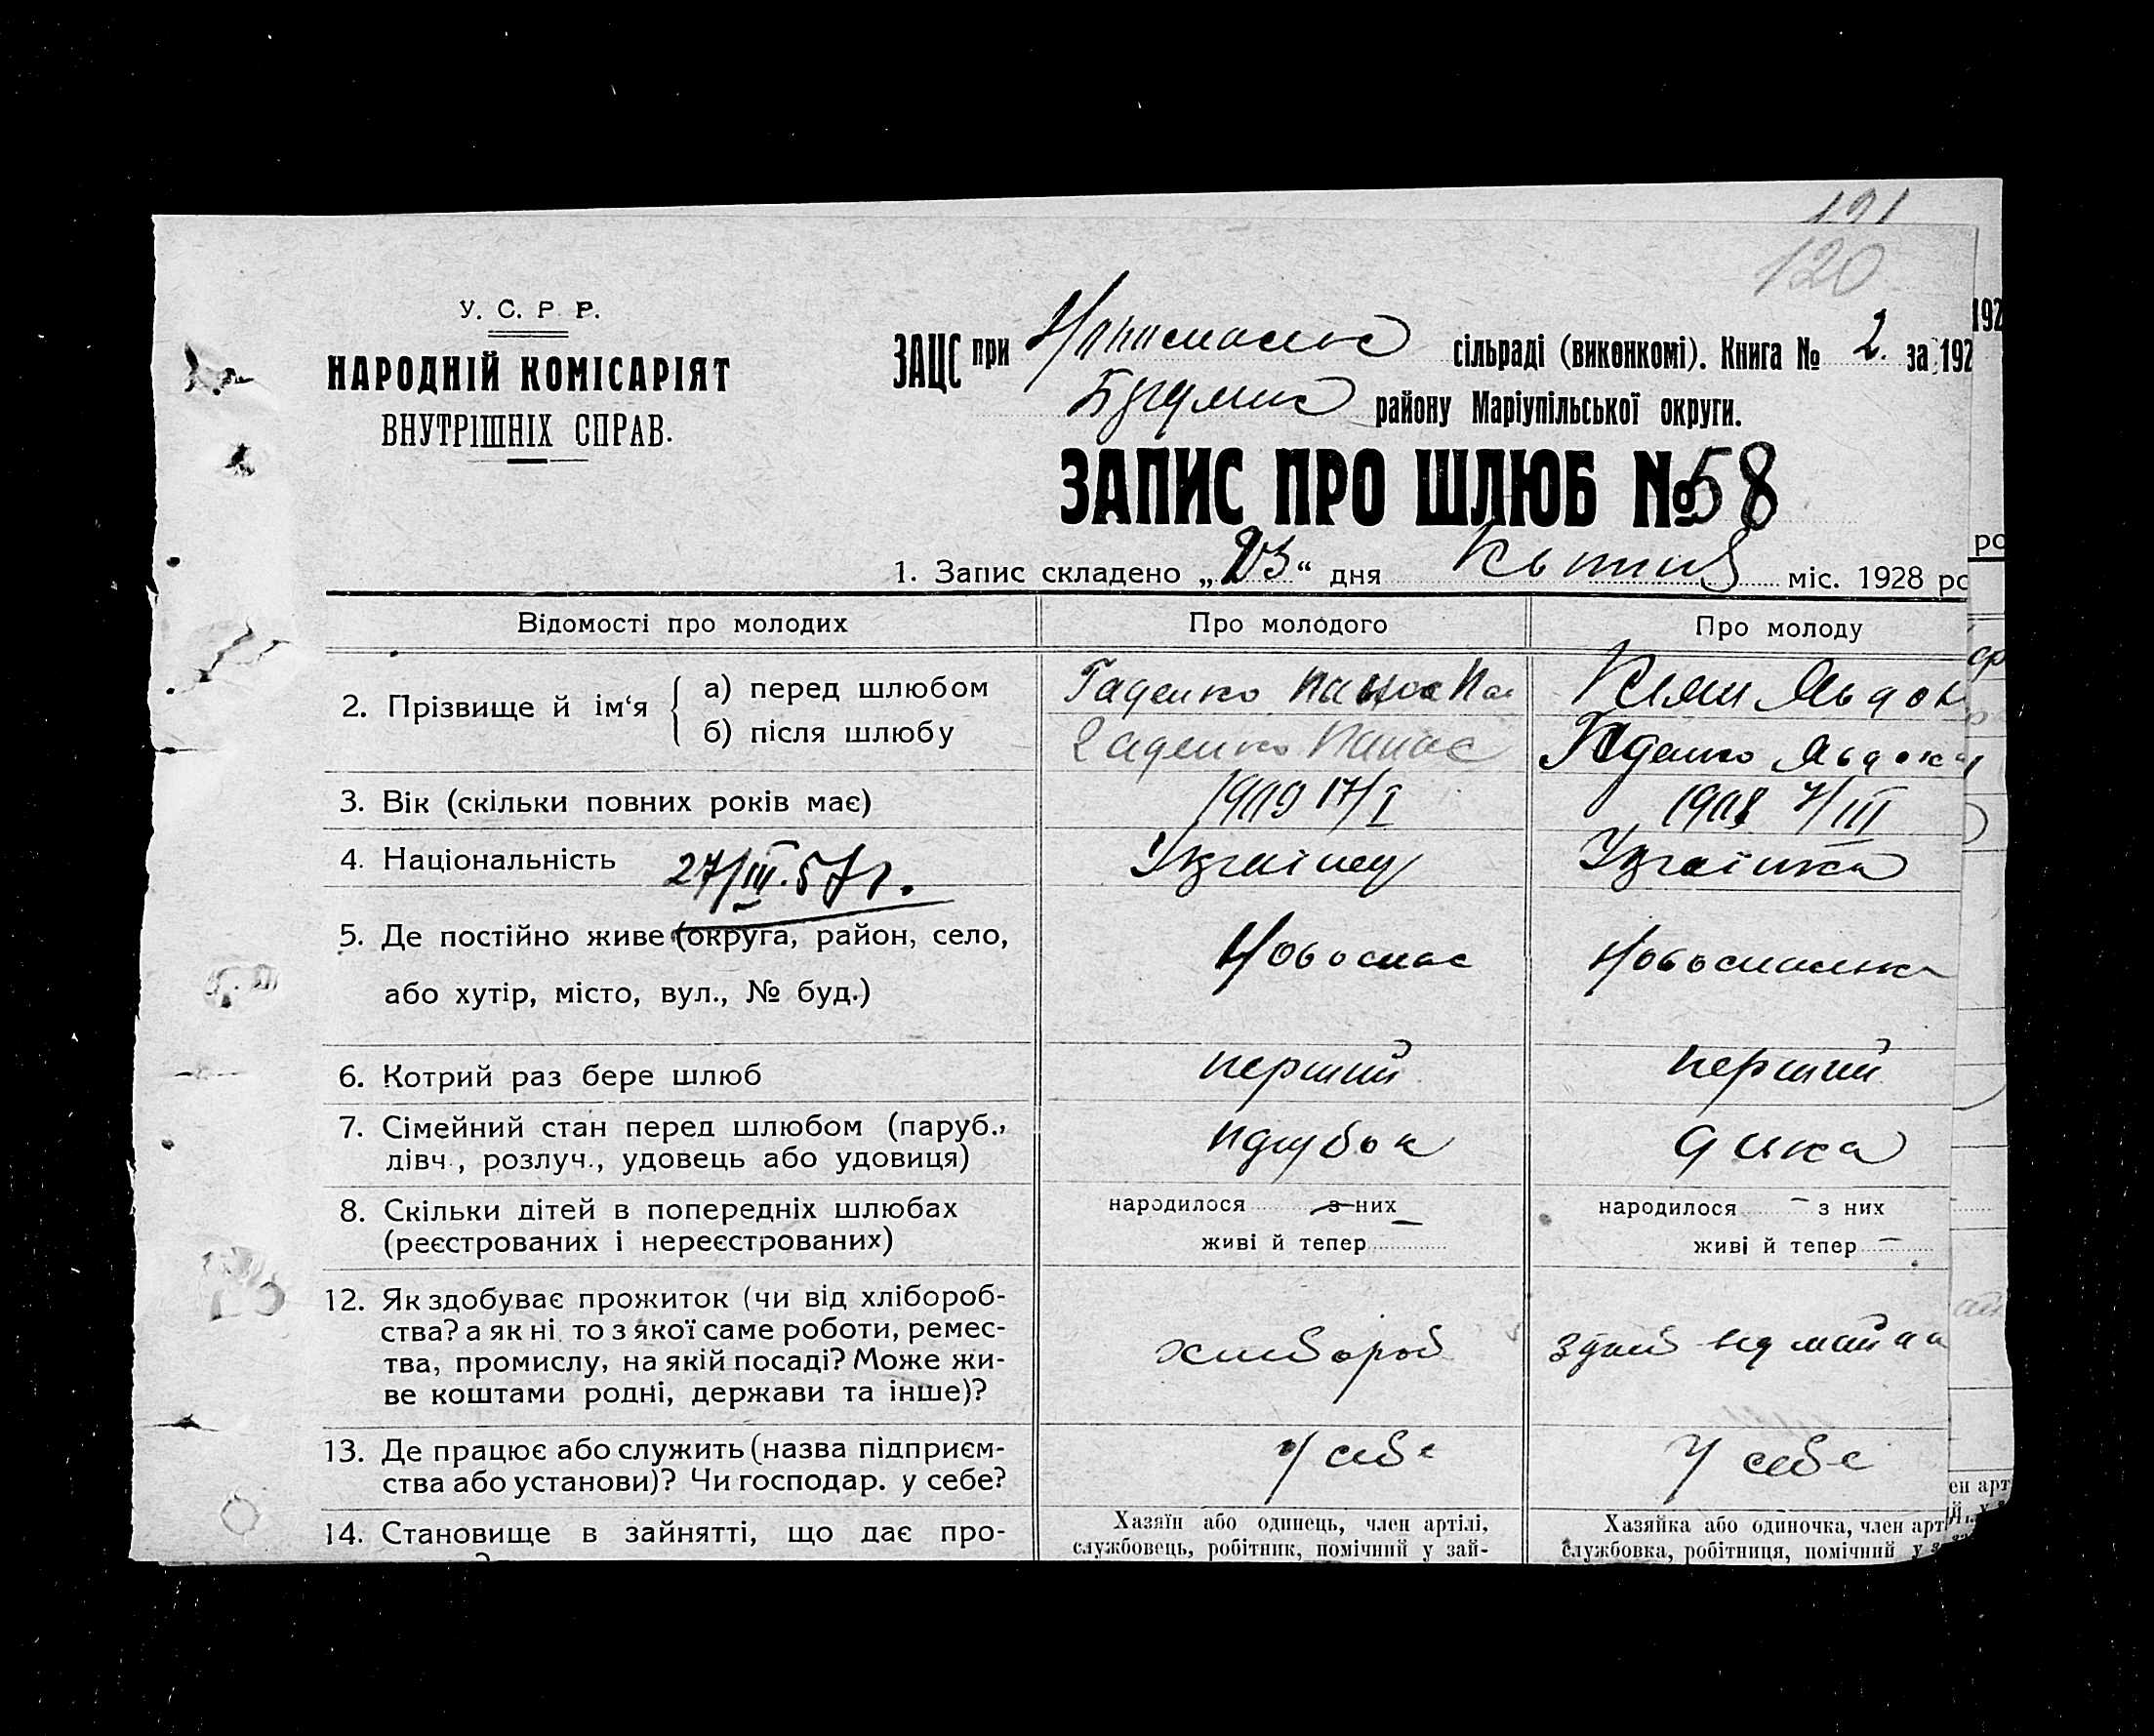 191
120
У. С. Р. Р.
НАРОДНІЙ КОМІСАРІЯТ
ВНУТРІШНІХ СПРАВ.
ЗАЦС при сільраді (виконкомі). Книга № 2. за 192
району Маріупільської округи.
ЗАПИС ПРО ШЛЮБ № 58
1. Запис складено „23“ дня міс. 1928 ро
Відомості про молодих
Про молодого
Про молоду
2. Прізвище й ім‘я
а) перед шлюбом
Гаденко Панас
б) після шлюбу
Гаденко Панас
3. Вік (скільки повних років має)
1909 17/I
1908 7/III
4. Національність
27/III.57г.
Українец
Українка
5. Де постійно живе (округа, район, село,
або хутір, місто, вул., № буд.)
Новоспас
Новоспаська
6. Котрий раз бере шлюб
перший
перший
7. Сімейний стан перед шлюбом (паруб.,
лівч., розлуч., удовець або удовиця)
парубок
8. Скільки дітей в попередніх шлюбах
(реєстрованих і нереєстрованих)
народилося — з них —
живі й тепер
народилося — з них
живі й тепер —
12. Як здобуває прожиток (чи від хлібороб-
ства? а як ні то з якої саме роботи, ремес-
тва, промислу, на якій посаді? Може жи-
ве коштами родні, держави та інше)?
хлибороб
13. Де працює або служить (назва підприєм-
ства або установи)? Чи господар. у себе?
У себе
У себе
14. Становище в зайнятті, що дає про-
Хазяїн або одинець, член артілі,
службовець, робітник, помічний у зай-
Хазяйка або одиночка, член арт
службовка, робітниця, помічний у з
192
ро
ен арт